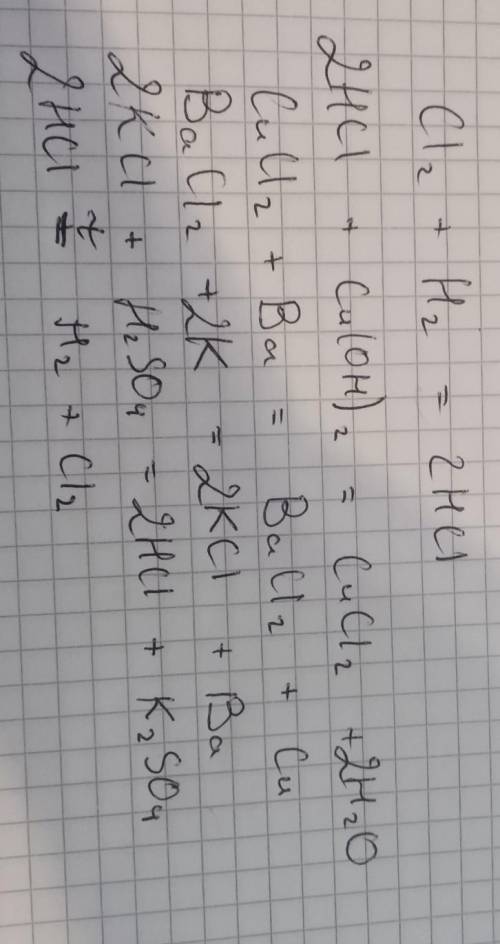 Cl₂ + H₂ = 2HCl
2HCl + Cu(OH)₂ = CuCl₂ + 2H₂O
CuCl₂ + Ba = BaCl₂ + Cu
BaCl₂ + 2K = 2KCl + Ba
2KCl + H₂SO₄ = 2HCl + K₂SO₄
2HCl = H₂ + Cl₂